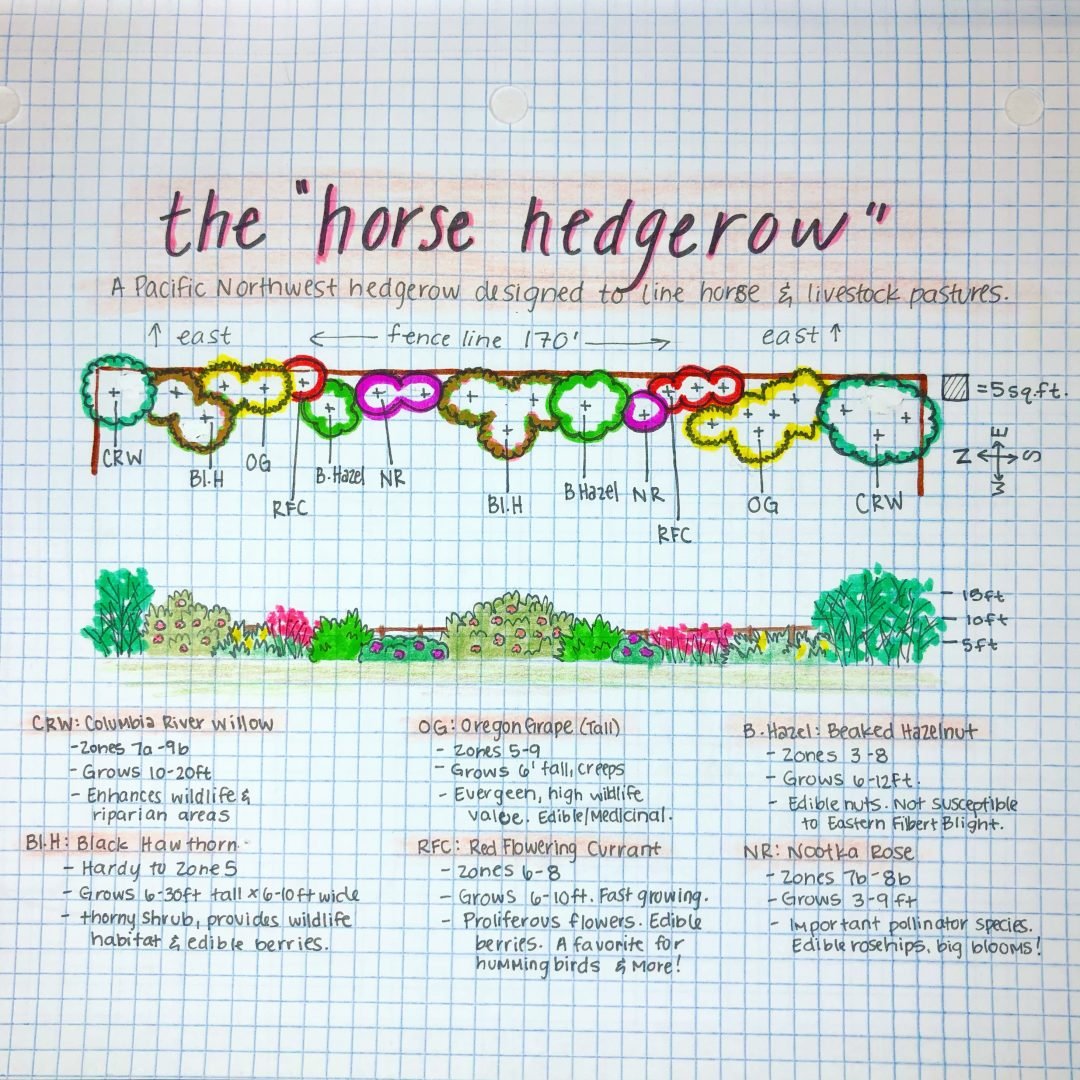 the "horse hedgerow"
A Pacific Northwest hedgerow designed to line horse & livestock pastures.
↑ east
← fence line 170' →
east ↑
= 5 sq.ft.
N E S W
CRW
Bl.H
OG
RFC
B.Hazel
NR
Bl.H
B Hazel
NR
RFC
OG
CRW
15ft
10ft
5ft
CRW: Columbia River Willow
- Zones 7a-9b
- Grows 10-20ft
- Enhances wildlife &
riparian areas
Bl.H: Black Hawthorn
- Hardy to Zone 5
- Grows 6-30ft tall x 6-10ft wide
- thorny shrub, provides wildlife
habitat & edible berries.
OG: Oregon Grape (Tall)
- Zones 5-9
- Grows 6' tall, creeps
- Evergeen, high wildlife
value. Edible/Medicinal.
RFC: Red Flowering Currant
- Zones 6-8
- Grows 6-10ft. Fast growing.
- Proliferous flowers. Edible
berries. A favorite for
hummingbirds & More!
B.Hazel: Beaked Hazelnut
- Zones 3-8
- Grows 6-12ft.
- Edible nuts. Not susceptible
to Eastern Filbert Blight.
NR: Nootka Rose
- Zones 7b-8b
- Grows 3-9ft
- Important pollinator species.
Edible rosehips, big blooms!